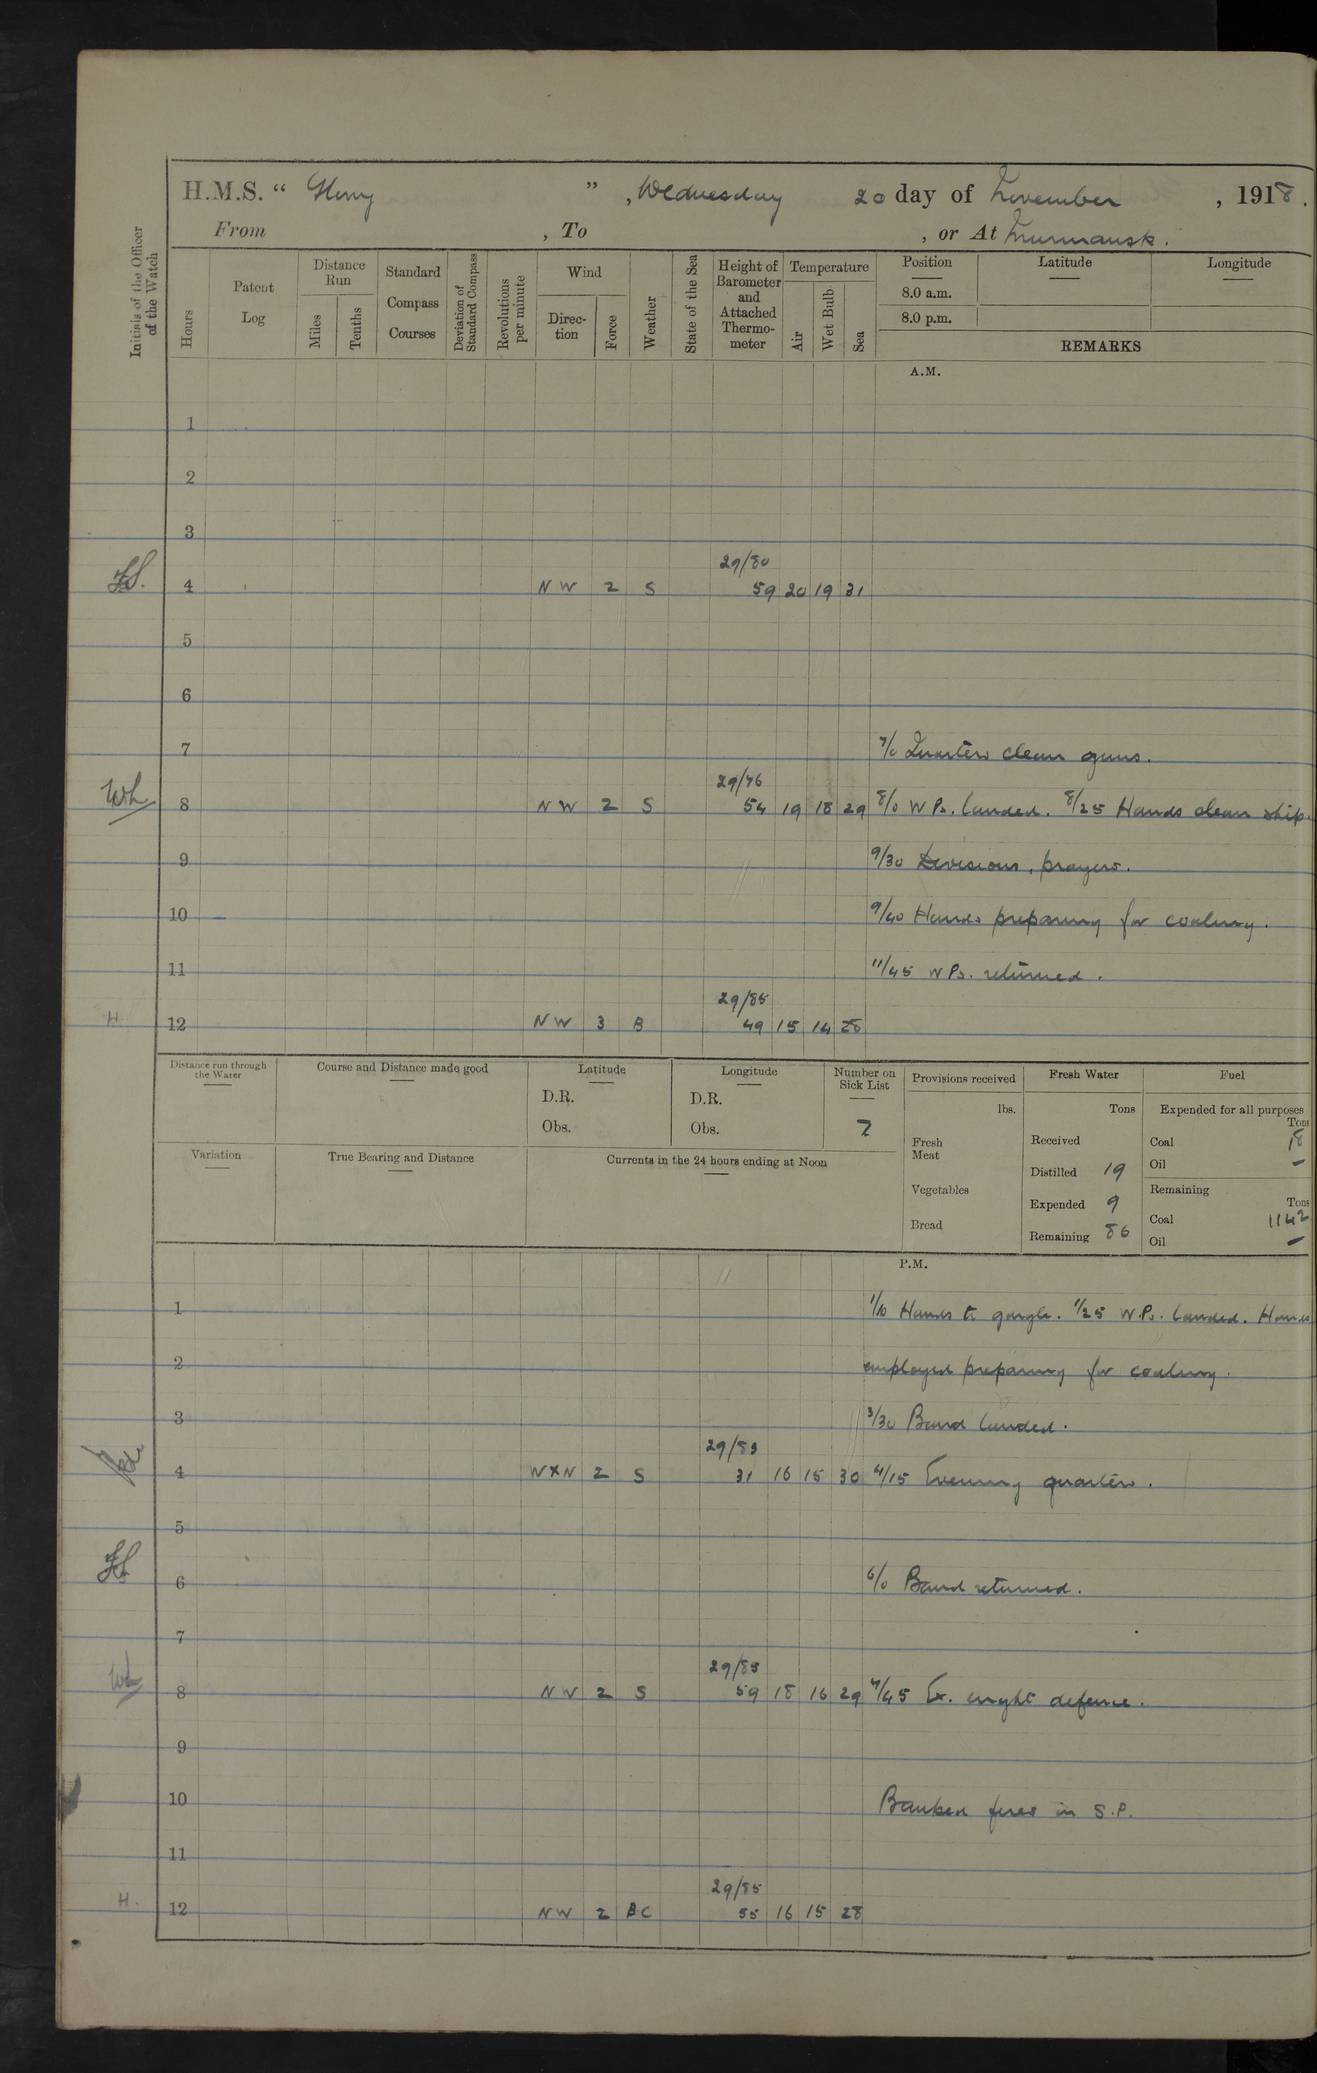 H.M.S. “ Glory ” , Wednesday 20 day of November , 1918.
From , To , or At Murmansk.
Initials of the Officer of the Watch
Hours
Patent Log
Distance Run
Miles
Tenths
Standard Compass Courses
Deviation of Standard Compass
Revolutions per minute
Wind
Direc-tion
Force
Weather
State of the Sea
Height of Barometer and Attached Thermo-meter
Temperature
Air
Wet Bulb
Sea
Position Latitude Longitude
8.0 a.m.
8.0 p.m.
REMARKS
A.M.
1
2
3
29/80
4 NW 2 S 59 20 19 31
5
6
7 7/0 Quarters clean guns.
29/76
8 NW 2 S 54 19 18 29 8/0 W Ps. landed. 8/25 Hands clean ship.
9 9/30 Divisions, prayers.
10 9/40 Hands preparing for coaling.
11 11/45 W Ps. returned.
29/85
H 12 NW 3 B 49 15 14 28
Distance run through the Water
Course and Distance made good
Latitude
D.R.
Obs.
Longitude
D.R.
Obs.
Number on Sick List
7
Provisions received
lbs.
Fresh Meat
Vegetables
Bread
Fresh Water
Tons
Received
Distilled 19
Expended 9
Remaining 86
Fuel
Expended for all purposes
Tons
Coal 18
Oil –
Remaining
Tons
Coal 1142
Oil –
Variation
True Bearing and Distance
Currents in the 24 hours ending at Noon
P.M.
1 1/10 Hands to gargle. 1/25 W.Ps. landed. Hands
2 employed preparing for coaling.
3 3/30 Band landed.
29/83
4 WxN 2 S 31 16 15 30 4/15 Evening quarters.
5
6 6/0 Band returned.
7
29/85
8 NW 2 S 59 18 16 29 7/45 Ex. night defence.
9
10 Banked fires in S.P.
11
29/85
H. 12 NW 2 BC 55 16 15 28